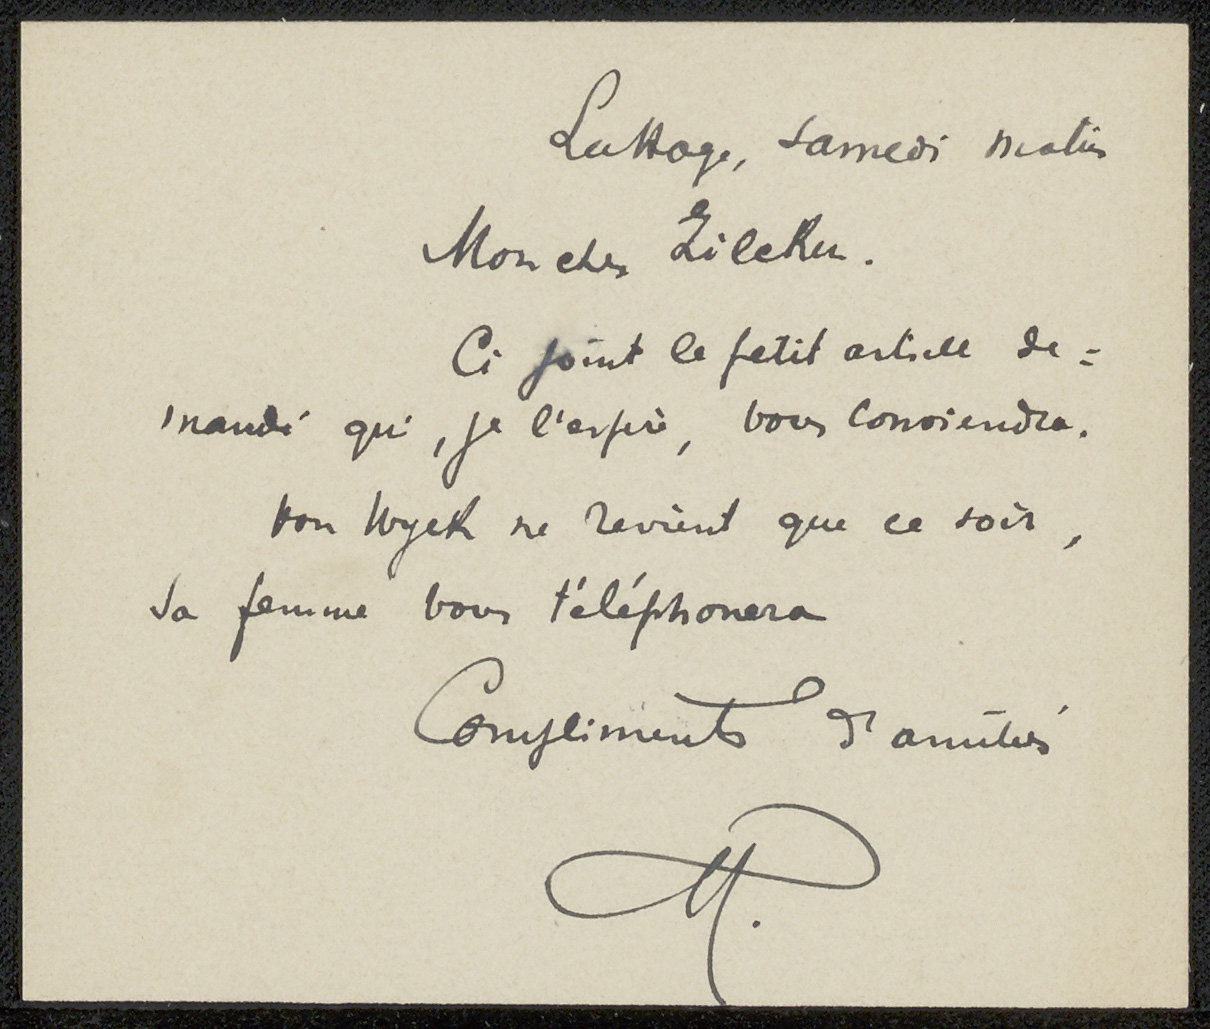 La Haye, samedi matin
Mon cher Zilcken.
Ci joint le petit article de=
mandé qui, je l'espère, vous conviendra.
von Wyck ne revient que ce soir,
sa femme vous téléphonera
Compliments d'amitiés
M.